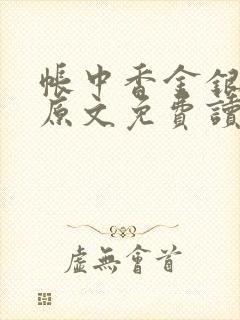 帳中香金銀
原文免費讀
虛無會首